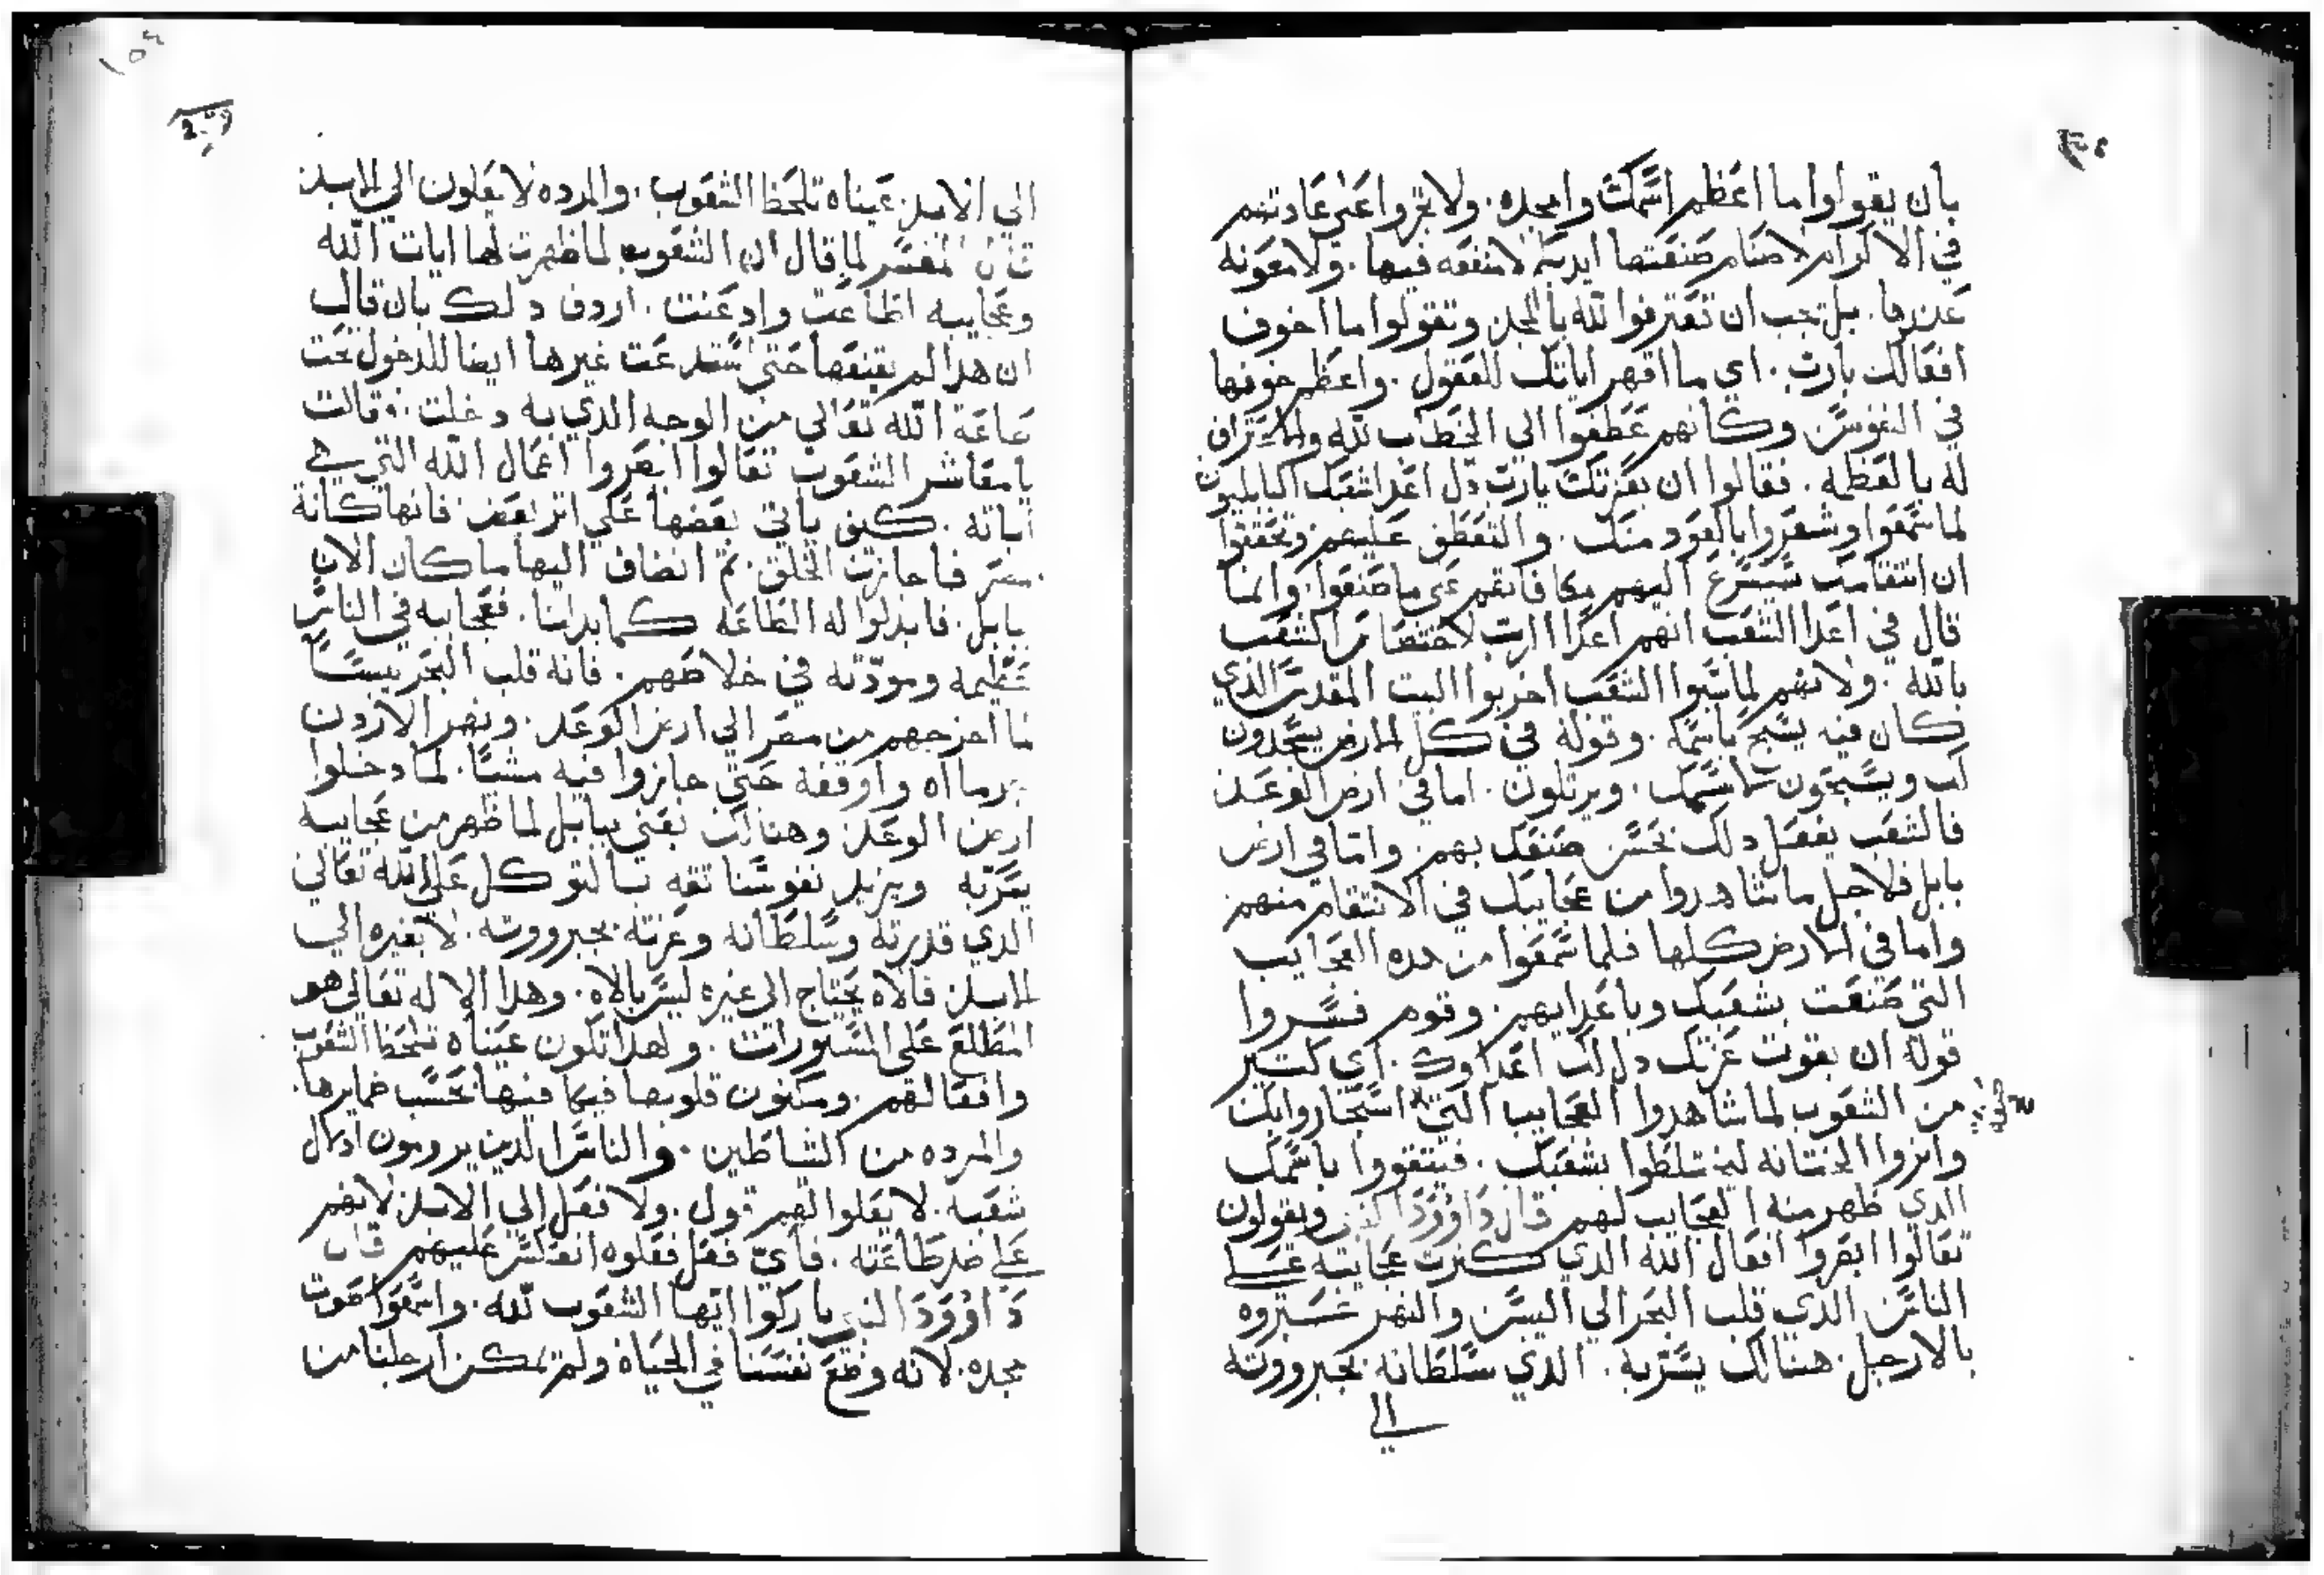 بان يقولوا ما اعظم اسمك وامجده. ولا تجروا على عادتهم
في الاكرام لاصنام صنعتها ايديهم لا منفعه فيها. ولا معونه
عندها. بل تجب ان تعترفوا لله بالمجد وتقولوا ما اخوف
افعالك يارب. اي ما اقهر اياتك للعقول. واعظم خوفها
في النفوس وكانهم عطفوا الي الخطاب لله والاعتراف
له بالعظمه. فقالوا ان بعزتك يارب دل اعدا شعبك البابليون
لما سمعوا وشعروا بالعود منك. والتعطف عليهم وتحققوا
ان انتقامك سيسرع اليهم مكافاتهم على ما صنعوا. وانما
قال في اعدا الشعب انهم اعدا الرب لاختصاص الشعب
بالله. ولانهم لما سبوا الشعب اخربوا البيت المقدس الذي
كان فيه يسبح باسمه. وقوله في كل الارض يسجدون
لك ويسبحون لاسمك. ويرتلون. اما في ارض الوعد
فالشعب يفعل دلك بحسن صنعك بهم. واما في ارض
بابل فلاجل ما شاهدوا من عجايبك في الانتقام منهم
واما في الارض كلها فلما سمعوا من هده العجايب
التي صنعت بشعبك وباعدايهم. وقوم فسروا
قوله ان بقوت عزتك دل لك اعداوك. اي كتير
من الشعوب لما شاهدوا العجايب التي استجاروا بك
واتروا الختانه ليختلطوا بشعبك. فيتقووا باسمك
الدي ظهر منه العجايب لهم قال داوود النبي ويقولون
تعالوا ابصروا افعال الله الدي كترت عجايبه علي
الناس الدي قلب البحر الي اليبس والنهر عبروه
بالارجل. هنالك يسر به. الدي سلطانه بجبرووته
الي
الي الابد. عيناه تلحظ الشعوب. والمرده لا يعلون الي الابد
قال المفسر لما قال ان الشعوب لما ظهرت لها ايات الله
وعجايبه اطاعت وادعنت. اردف دلك بان قال
ان هدا لم يقنعها حتى استدعت غيرها ايضا للدخول تحت
طاعة الله تعالي من الوجه الدي به دخلت. وقالت
يا معاشر الشعوب تعالوا ابصروا اعمال الله التي هي
اياته. كيف ياتي بعضها علي اتر بعض فانها كانة
بمصر فاحازت الخلق. تم انضاف اليها ما كان الان
ببابل. فابدلوا له الطاعه كما بدلنا. فعجايبه في الناس
عظيمه ومودته في خلاصهم. فانه قلب البحر يبساً
لما اخرجهم من مصر الي ارض الوعد. ونهر الاردن
وماه اوقفه حتى جازوا فيه مشياً. لما دخلوا
ارض الوعد وهنالك نعني ببابل لما ظهر من عجايبه
بعزته ويزيد نفوسنا تقه بالتوكل علي الله تعالي
الدي قدرته وسلطانه وعزته بجبرووته. لا بغيره الي
الابد. فالاه يحتاج الى غيره ليس بالاه. وهدا الاله تعالي هو
المطلع على المستورات. ولهدا تكون عيناه تلحظ الشعوب
وافعالهم. ومكنون قلوبها فيما فيها بحسب ضمايرها.
والمرده من الشياطين. والناس الدين يرومون ادلال
شعبه. لا يعلوا لهم قول. ولا فعل الي الابد. لانهم
علي ضد طاعته. فاي فعل فعلوه انعكس عليهم قال
داوود النبي باركوا ايها الشعوب لله. واسمعوا صوت
مجده. لانه وضع نفسنا في الحياة ولم تمكن ارجلنا من